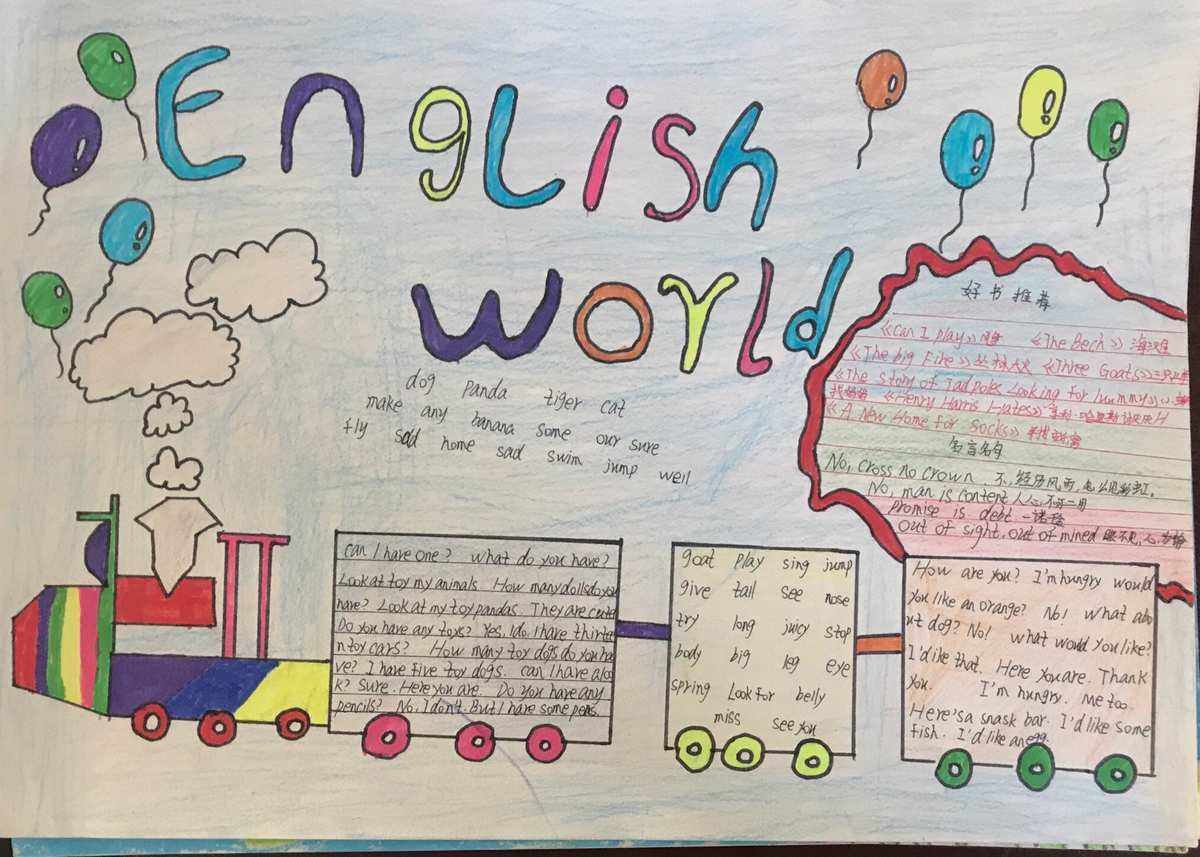 English
world
dog panda tiger cat
make any banana some our sure
fly sad home sad swim jump weil
好书推荐
《Can I play》 《The Bech》海滩
《The big Fike》 《Three Goats》三只
《The Story of Tadpoles Looking for Mummy》小
找妈妈 《Henry Harris Hates》亨利·哈里斯
《A New Home for Socks》
名言名句
No, cross no crown. 不经历风雨,怎么见彩虹.
No, man is content 人心不足
promise is debt 一诺
out of sight, out of mined 眼不见,心
can I have one? what do you have?
Look at toy my animals. How many dolls do you
have? Look at my toy pandas. They are
Do you have any toys? Yes, I do. I have thirtee
n toy cars? How many toy dogs do you ha
ve? I have five toy dogs. can I have aloo
k? Sure. Here you are. Do you have any
pencils? No, I don't. But I have some pens.
goat play sing jump
give tall see nose
try long juicy stop
body big leg eye
spring Look for belly
miss see you
How are you? I'm hungry would
you like an orange? No! what abo
ut dog? No! what would you like?
I'd like that. Here you are. Thank
you. I'm hungry. Me too.
Here's a snask bar. I'd like some
fish. I'd like an egg.